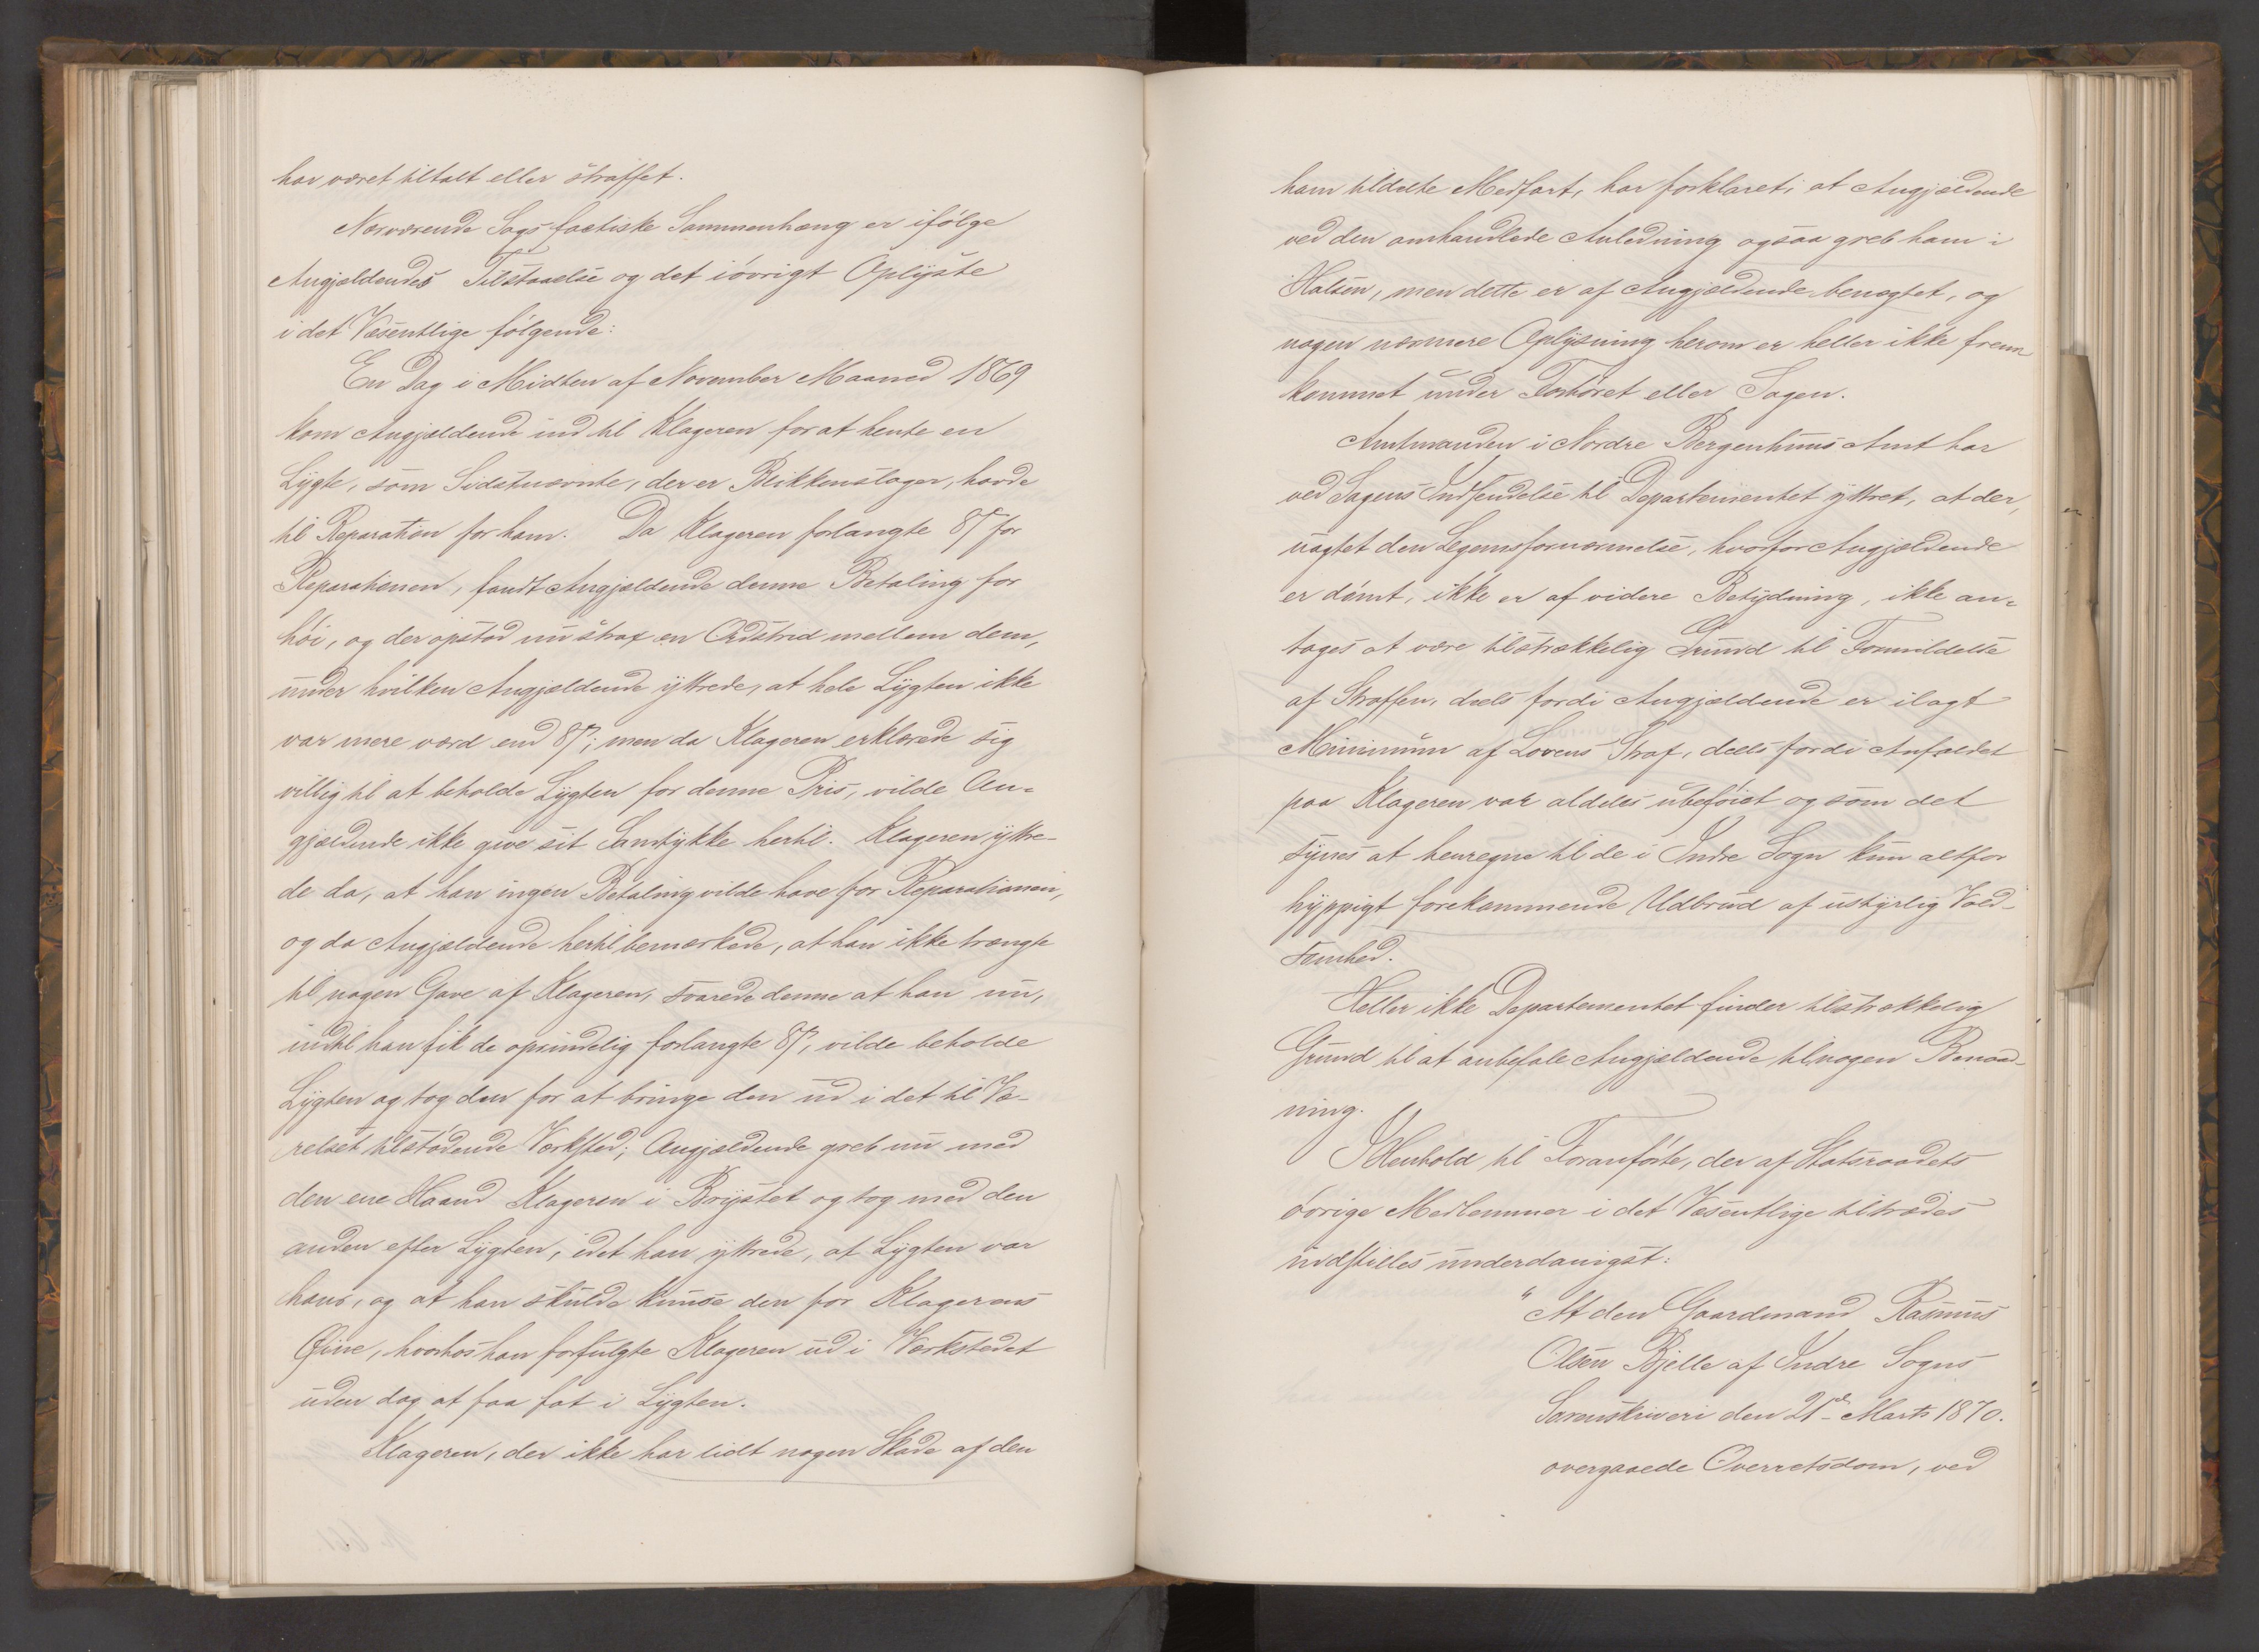 har været tiltalt eller straffet.
Nærværende Sags factiske Sammenhæng er ifølge
Angjældendes Tilstaaelse og det iøvrigt Oplyste
i det Væsentlige følgende:
En Dag i Midten af November Maaned 1869
kom Angjældende ind til Klageren for at hente en
Lygte, som Sidstnævnte, der er Blikkenslager, havde
til Reparation for ham. Da Klageren forlangte 8 β for
Reparationen, fandt Angjældende denne Betaling for
høi, og der opstod nu strax en Ordstrid mellem dem,
under hvilken Angjældende yttrede, at hele Lygten ikke
var mere værd end 8 β; men da Klageren erklærede sig
villig til at beholde Lygten for denne Pris, vilde An-
gjældende ikke give sit Samtykke hertil. Klageren yttre-
de da, at han ingen Betaling vilde have for Reparationen,
og da Angjældende hertil bemærkede, at han ikke trængte
til nogen Gave af Klageren, svarede denne at han nu,
indtil han fik de oprindelig forlangte 8 β, vilde beholde
Lygten og tog den for at bringe den ud i det til Væ-
relset tilstødende Værksted; Angjældende greb nu med
den ene Haand Klageren i Brystet og tog med den
anden efter Lygten, idet han yttrede, at Lygten var
hans, og at han skulde knuse den for Klagerens
Øine, hvorhos han forfulgte Klageren ud i Værkstedet
uden dog at faa fat i Lygten.
Klageren, der ikke har lidt nogen Skade af den
ham tildelte Medfart, har forklaret, at Angjældende
ved den omhandlede Anledning ogsaa greb ham i
Halsen, men dette er af Angjældende benægtet, og
nogen nærmere Oplysning herom er heller ikke frem
kommet under Forhøret eller Sagen.
Amtmanden i Nordre Bergenhuus Amt har
ved Sagens Indsendelse til Departementet yttret, at der,
uagtet den Legemsfornærmelse, hvorfor Angjældende
er dømt, ikke er af videre Betydning, ikke an-
tages at være tilstrækkelig Grund til Formildelse
af Straffen, deels fordi Angjældende er ilagt
Minimum af Lovens Straf, deels fordi Anfaldet
paa Klageren var aldeles ubeføiet og som det
synes at henregne til de i Indre Sogn kun altfor
hyppigt forekommende Udbrud af ustyrlig Vold-
somhed.
Heller ikke Departementet finder tilstrækkelig
Grund til at anbefale Angjældende til nogen Benaad-
ning.
I Henhold til Foranførte, der af Statsraadets
øvrige Medlemmer i det Væsentlige tiltrædes
indstilles underdanigst:
"At den Gaardmand Rasmus
Olsen Bjelle af Indre Sogns
Sorenskriveri den 21de Marts 1870.
overgaaede Overretsdom, ved